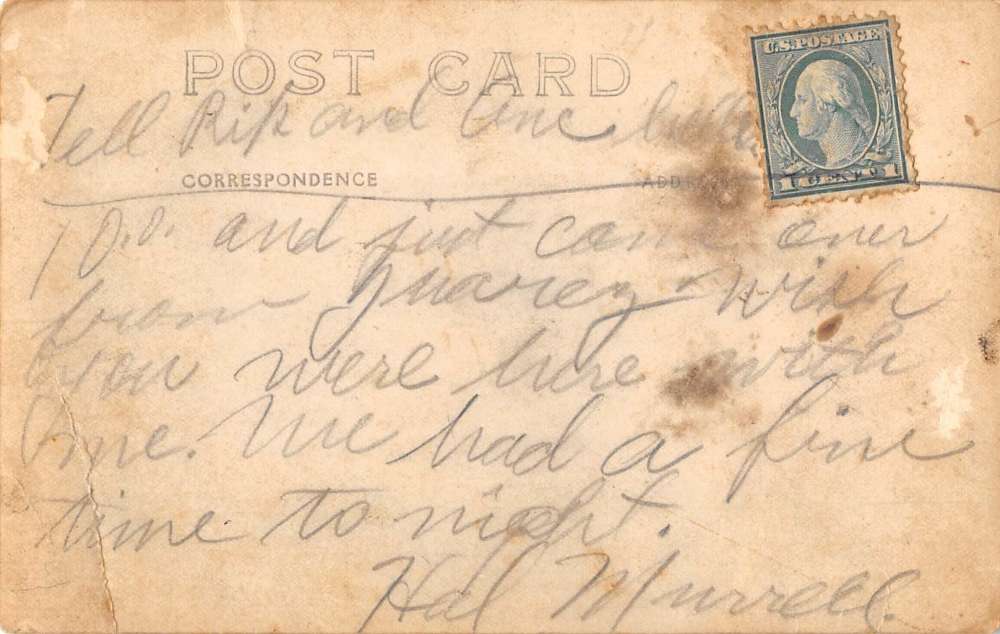 POST CARD
U.S. POSTAGE
1 CENT 1
Tell Rip and
CORRESPONDENCE
and just came over
from Juarez wish
you were here with
me. We had a fine
time to night.
Hal Murrell.